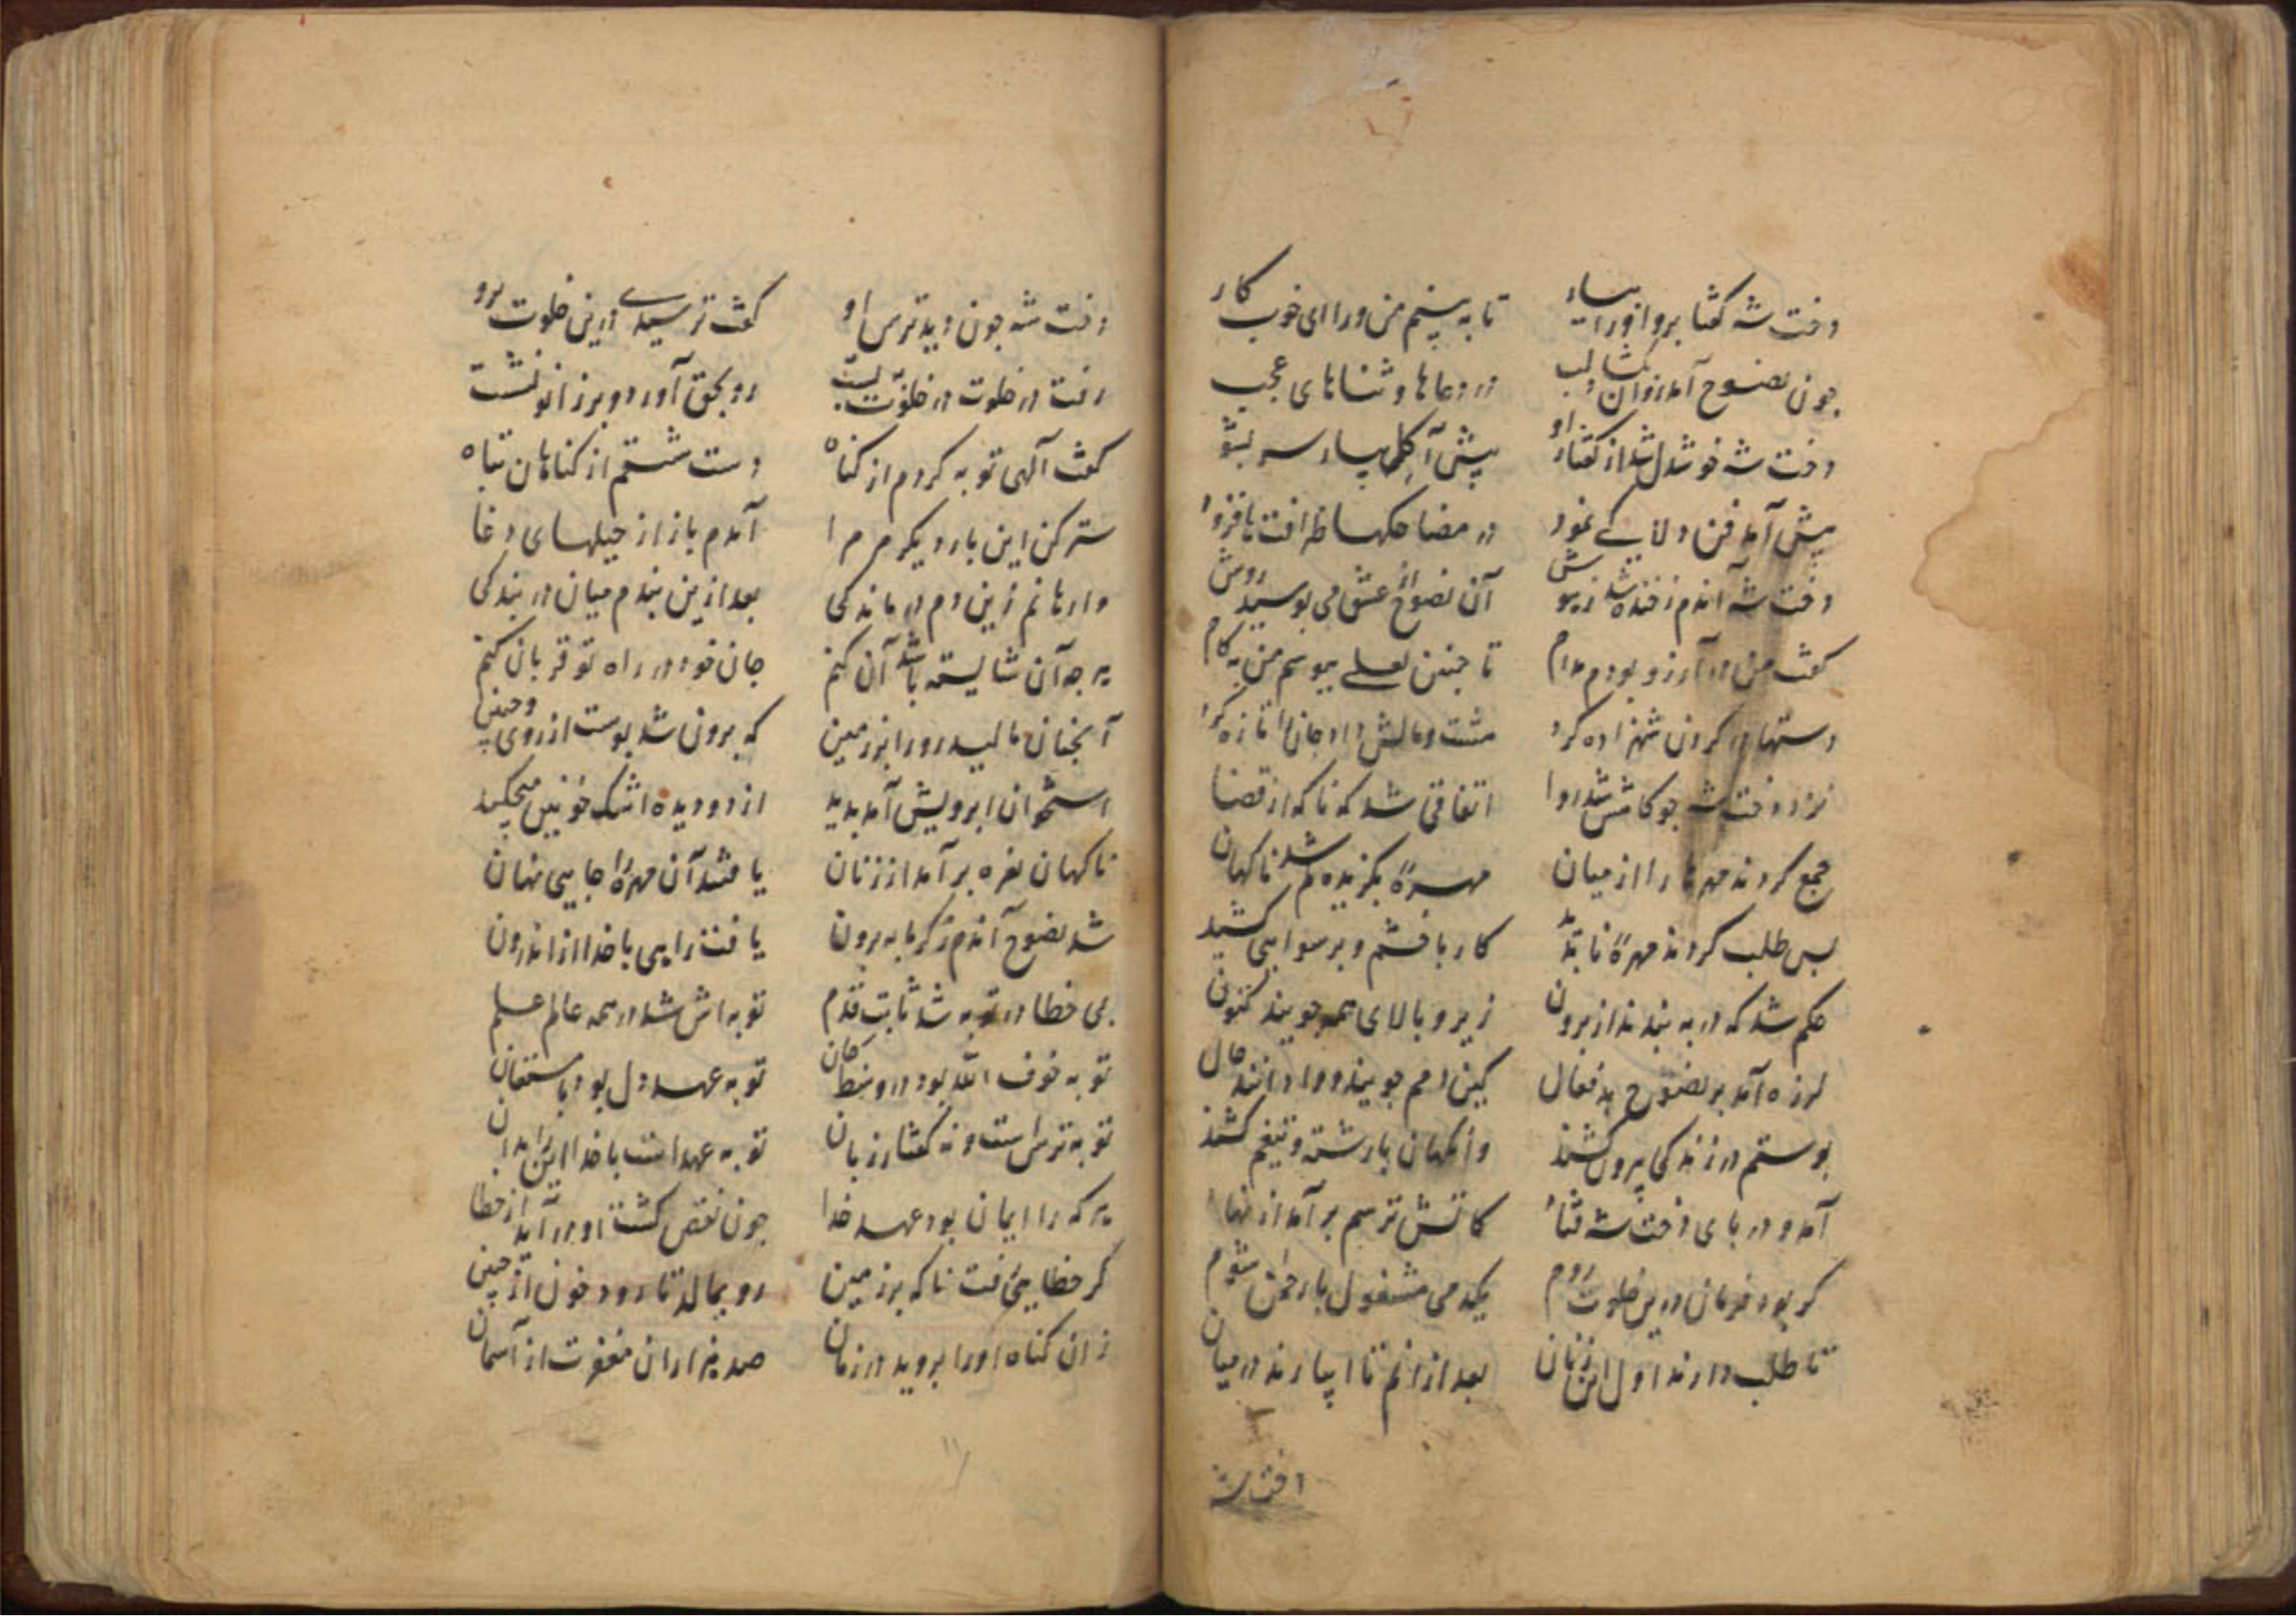 دخت شه کفتا برو او را بیار تا به بینم من ورا ای خوب کار
چون نصوح آمد روان بکشاد لب در دعاها و ثناهای عجب
دخت شه خوشدل شد از کفتار او پیش آ کل بیار سر بشو
پیش آمد فن دلاکی نمود در مضاحکها ظرافتها فزود
دخت شه آندم ز خنده شد ز هوش آن نصوح از عشق می بوسید روش
کفت من در آرزو بودم مدام تا چنین لعلی ببوسم من به کام
دستها در کردن شهزاده کرد مشت و مالش داد و جان را تازه کرد
نزد دخت شه چو کامش شد روا اتفاقی شد که ناکه از قضا
جمع کردند مهرها را از میان مهرهٔ بکزیده کم شد ناکهان
بس طلب کردند مهره نا بدید کار با خشم و برسوایی کشید
حکم شد که در به بندند از برون زیر و بالای همه جویند کنون
لرزه آمد بر نصوح بدفعال کین دمم جویند و وادانند حال
پوستم در زندکی بیرون کشند وانکهان با رشته و تیغم کشند
آمد و در پای دخت شه فتاد کاتش ترسم برآمد از نهاد
کر بود فرمان درین خلوت روم یکدمی مشغول با رحمن شوم
تا طلب دارند اول این زنان بعد از آنم تا بیارند در میان
دخت شه
دخت شه چون دید ترس او کفت ترسیدی درین خلوت برو
رفت در خلوت در خلوت ببست رو بحق آورد و بر زانو نشست
کفت آلهی توبه کردم از کناه دست شستم از کناهان تباه
ستر کن این بار دیکر مر مرا آمدم باز از حیلهای دغا
وارهانم زین دم درماندکی بعد ازین بندم میان در بندکی
هر چه آن شایسته باشد آن کنم جان خود در راه تو قربان کنم
آنچنان مالید رو را بر زمین که برون شد پوست از روی و جبین
استخوان ابرویش آمد بدید از دو دیده اشک خونین میچکید
ناکهان نعره برآمد از زنان یافتند آن مهره را جایی نهان
شد نصوح آندم ز کرمابه برون یافت راهی با خدا از اندرون
بی خطا در توبه شد ثابت قدم توبه اش شد در همه عالم علم
توبه خوف الله بود در وسط جان توبه عهد دل بود با مستعان
توبه ترس است و نه کفتار زبان توبه عهد است با خدا این را بدان
هر که را ایمان بود عهد خدا چون نقض کشت او در آید از خطا
کر خطایی رفت ناکه بر زمین رو بمالد تا رود خون از جبین
زان کناه او را بروید در زمان صد هزاران مغفرت از آسمان